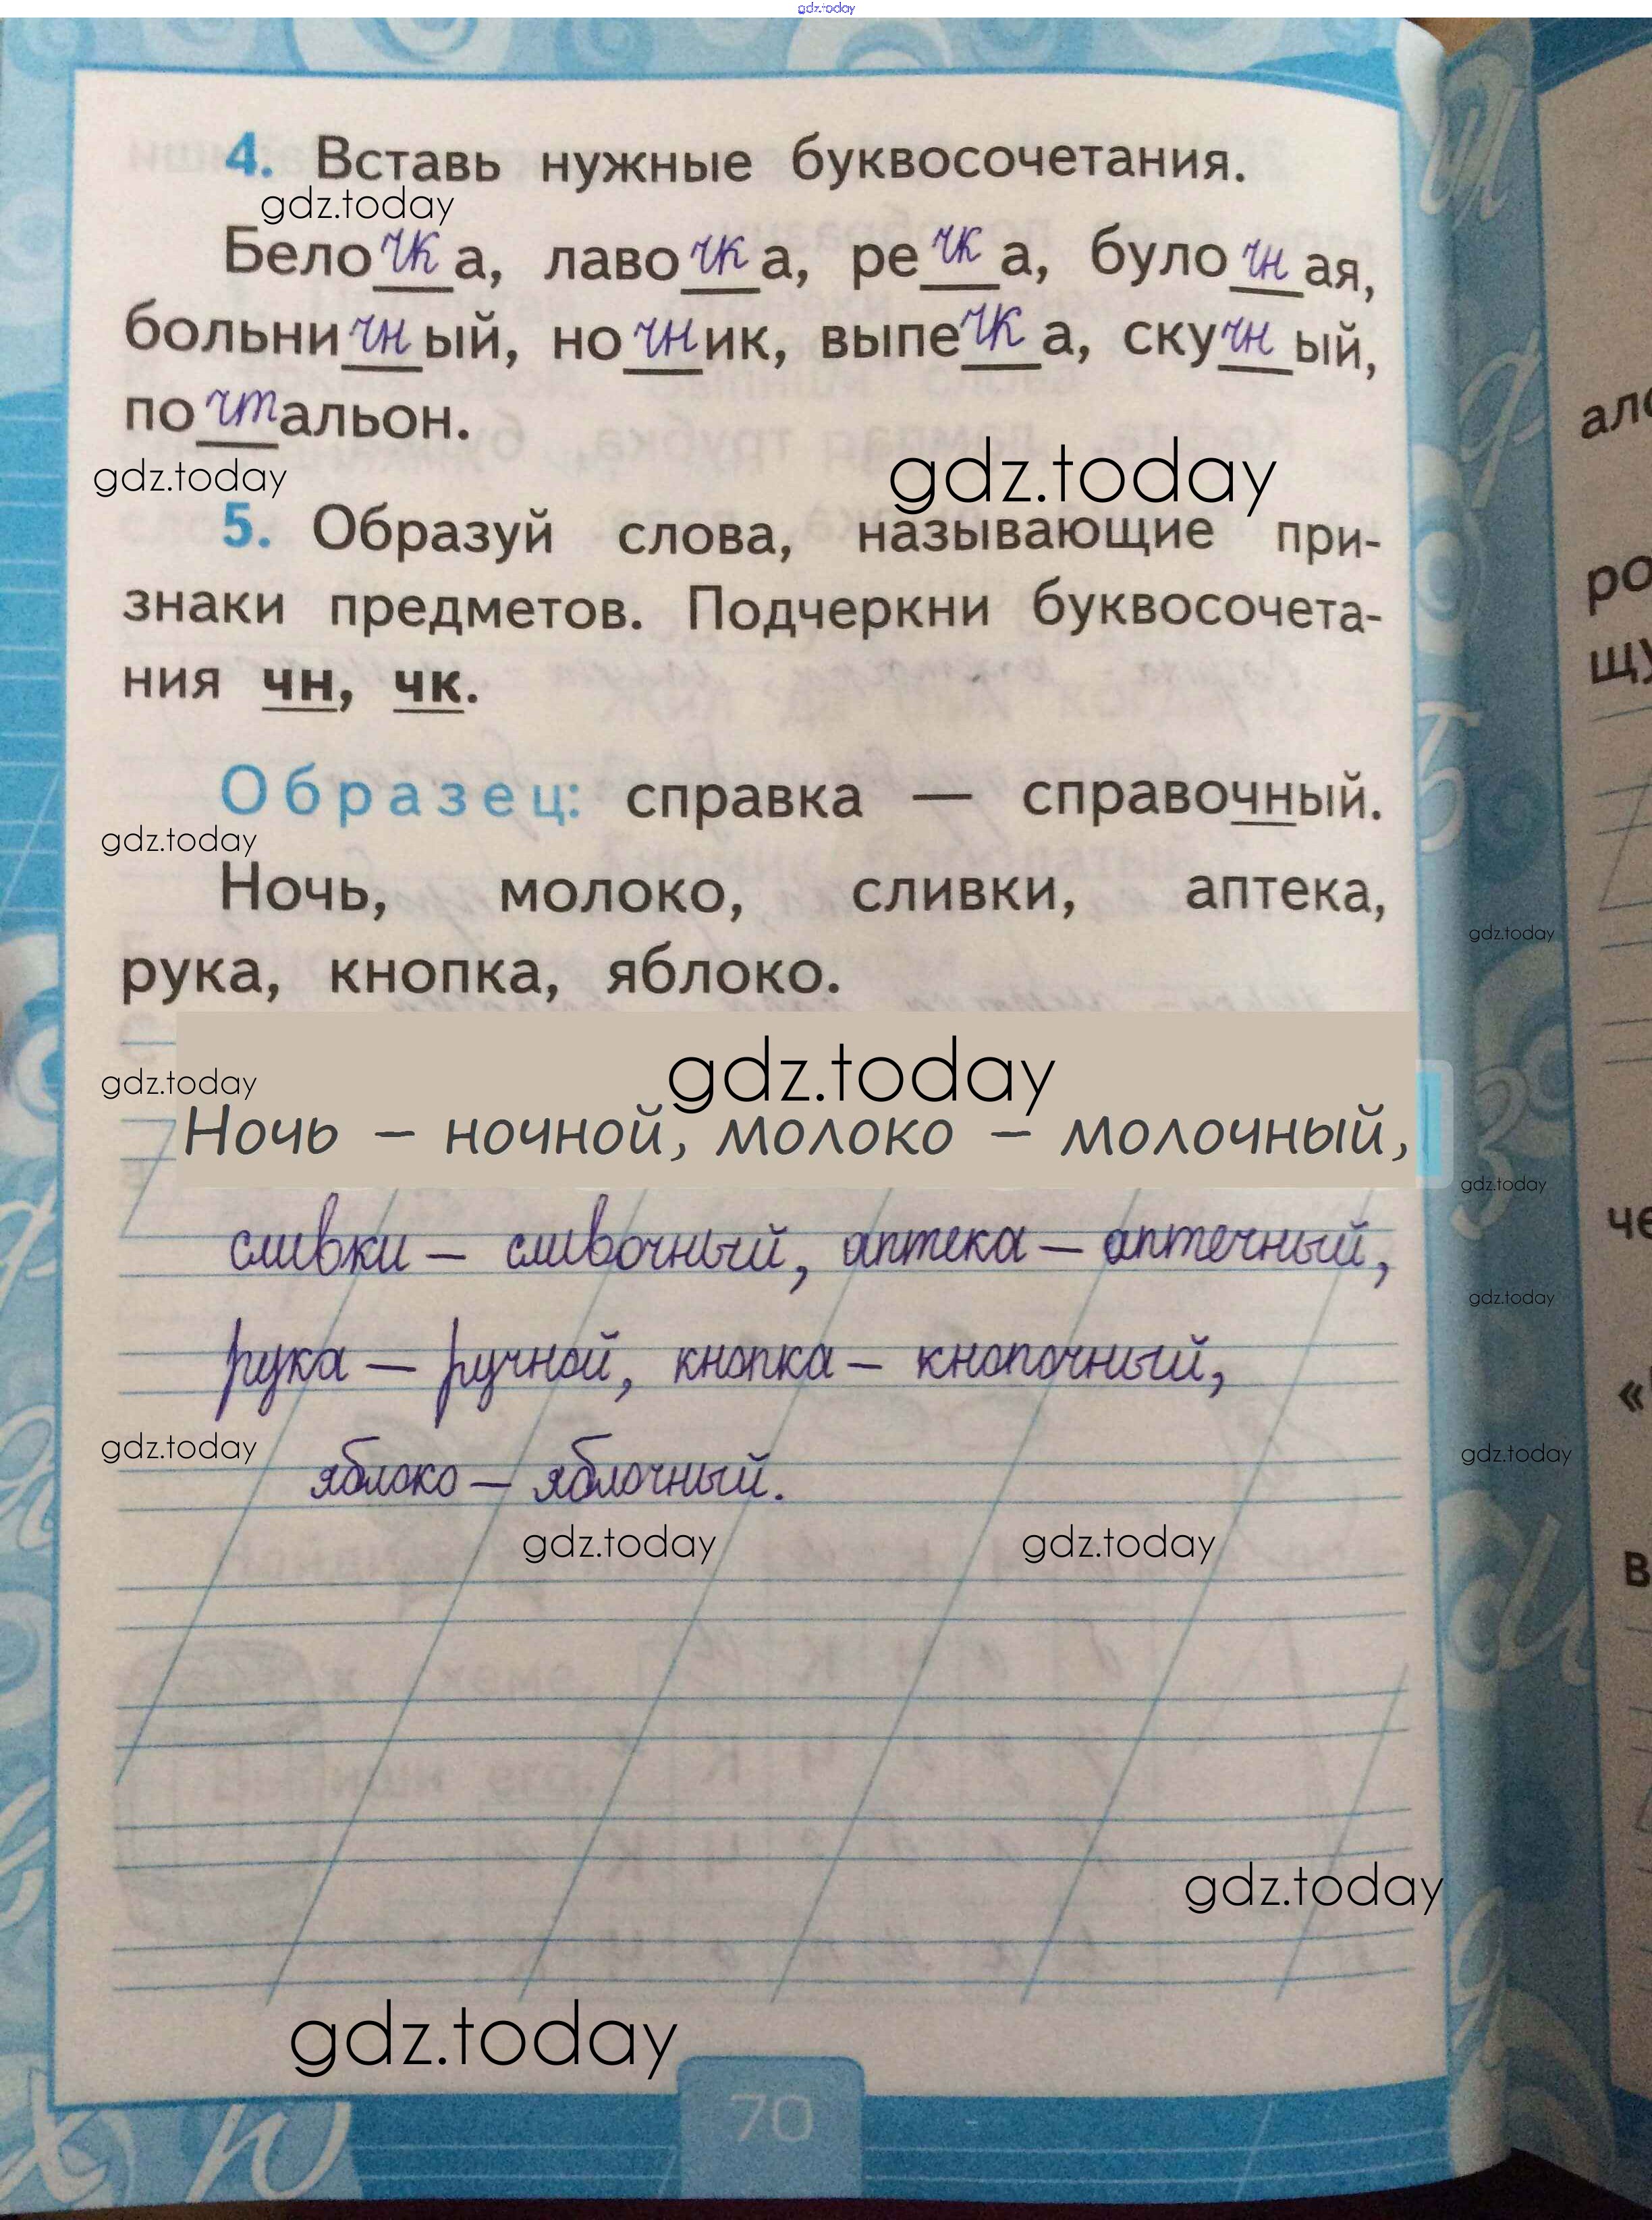 gdz.today
4. Вставь нужные буквосочетания.
gdz.today
Белочка, лавочка, речка, булочная,
больничный, ночник, выпечка, скучный,
почтальон.
gdz.today
gdz.today
5. Образуй слова, называющие при-
знаки предметов. Подчеркни буквосочета-
ния чн, чк.
Образец: справка — справочный.
gdz.today
Ночь, молоко, сливки, аптека,
gdz.today
рука, кнопка, яблоко.
gdz.today
gdz.today
Ночь – ночной, молоко – молочный,
gdz.today
сливки – сливочный, аптека – аптечный,
gdz.today
рука – ручной, кнопка – кнопочный,
gdz.today
gdz.today
яблоко – яблочный.
gdz.today
gdz.today
gdz.today
gdz.today
70